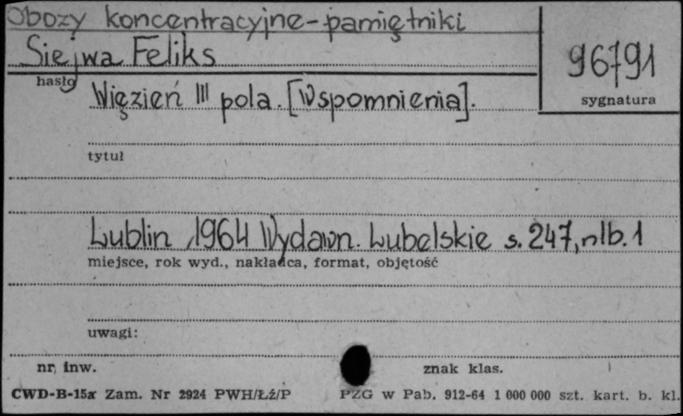 Obozy koncentracyjne-pamiętniki
Siejwa Feliks
96791
hasło
sygnatura
Więzień III pola. [Wspomnienia].
tytuł
Lublin, 1964 Wydawn. Lubelskie s. 247, nlb. 1
miejsce, rok wyd., nakładca, format, objętość
uwagi:
nr. inw.
znak klas.
CWD-B-15a Zam. Nr 2924 PWH/Łź/P PZG w Pab. 912-64 1 000 000 szt. kart. b. kl.